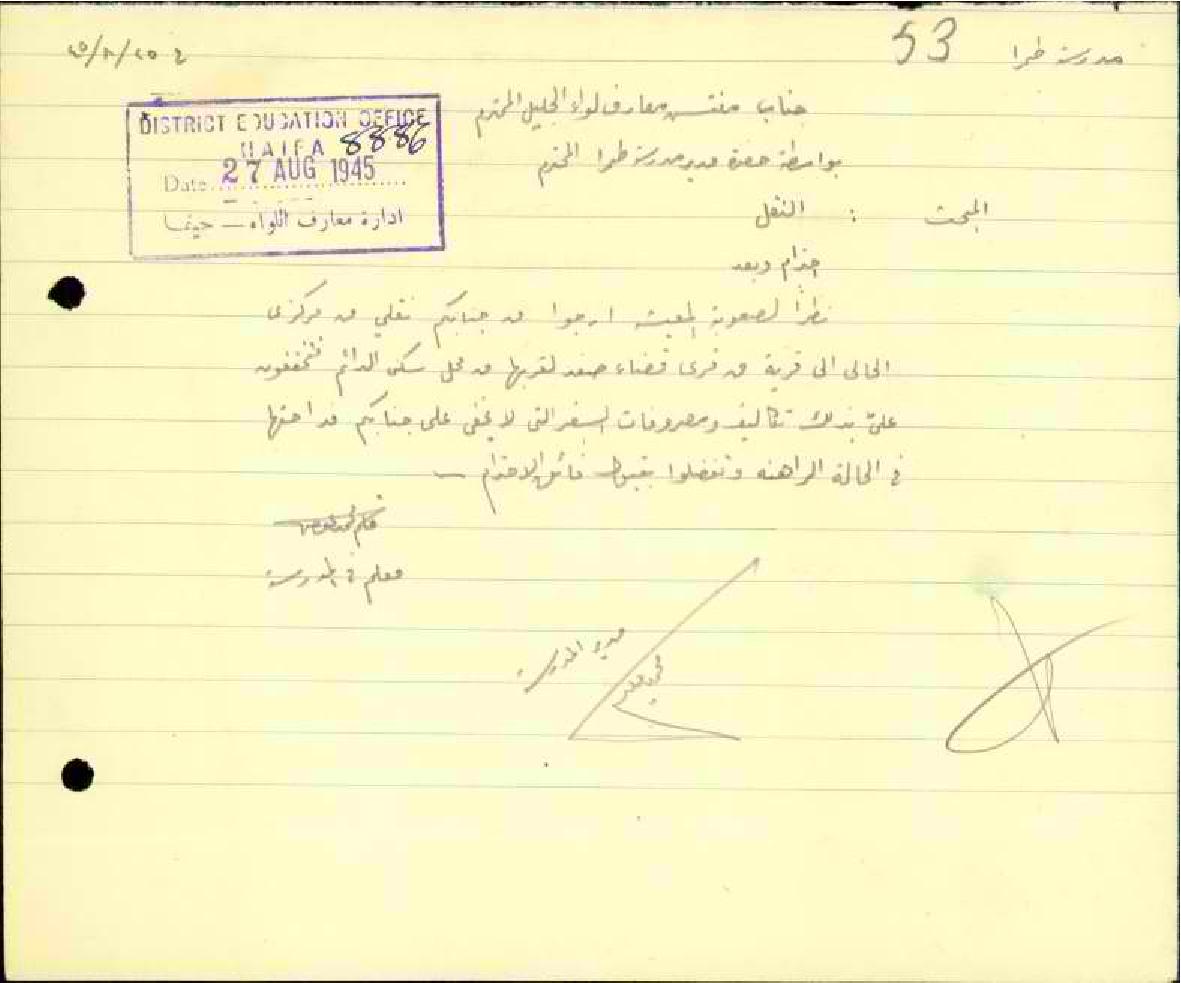 مدرسة طمرا
53
٢٥/٨/٤٥
DISTRICT EDUCATION OFFICE
HAIFA 8886
Date 27 AUG 1945
ادارة معارف اللواء — حيفا
جناب مفتش معارف لواء الجليل المحترم
بواسطة حضرة مدير مدرسة طمرا المحترم
المبحث : النقل
احترام وبعد
نظراً لصعوبة المعيشة ارجوا من جنابكم نقلي من مركزي
الحالي الى قرية من قرى قضاء صفد لقربها من محل سكني الدائم فتخففون
عليّ بذلك تكاليف ومصروفات السفر التي لا تخفى على جنابكم
في الحالة الراهنه وتفضلوا بقبول فائق الاحترام
معلم في المدرسة
مدير المدرسة